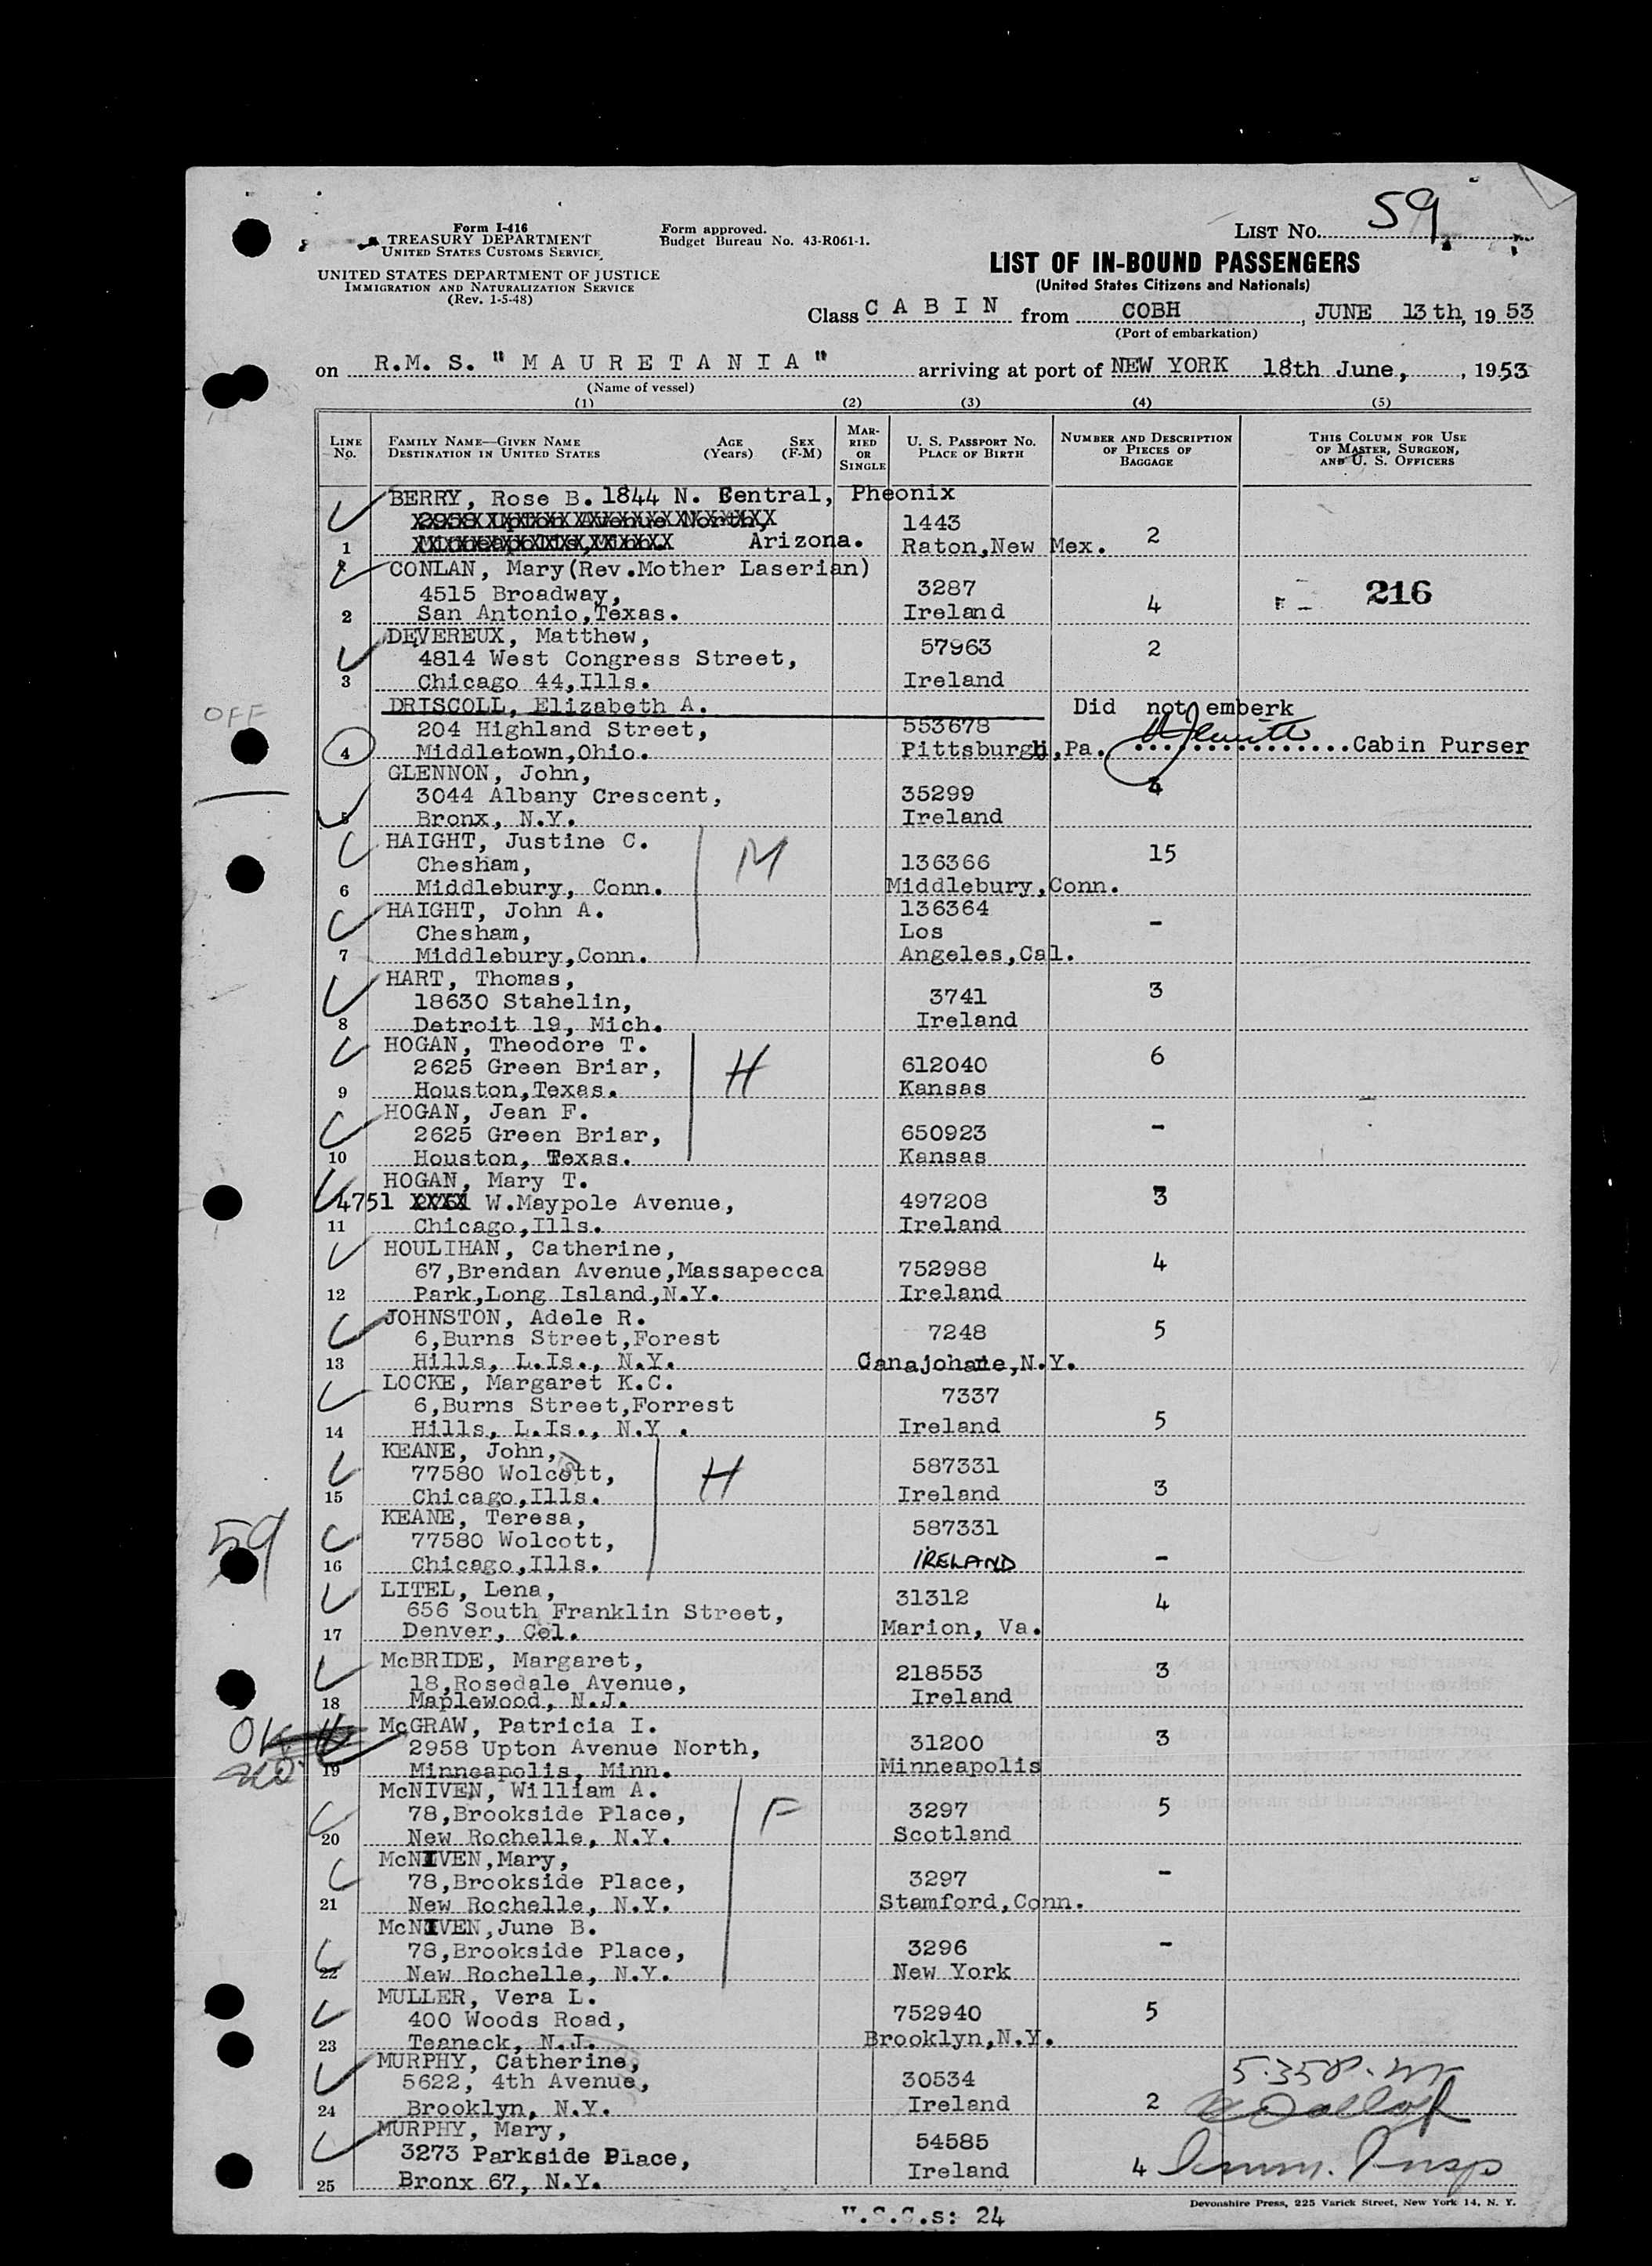 59
Form I-416
TREASURY DEPARTMENT
UNITED STATES CUSTOMS SERVICE
UNITED STATES DEPARTMENT OF JUSTICE
IMMIGRATION AND NATURALIZATION SERVICE
(Rev. 1-5-48)
Form approved.
Budget Bureau No. 43-R061-1.
LIST NO.
LIST OF IN-BOUND PASSENGERS
(United States Citizens and Nationals)
Class C A B I N from COBH, JUNE 13th, 1953
(Port of embarkation)
on R.M. S. "M A U R E T A N I A" arriving at port of NEW YORK 18th June, , 1953
(Name of vessel)
(1) (2) (3) (4) (5)
LINE No.
FAMILY NAME—GIVEN NAME
DESTINATION IN UNITED STATES
AGE (Years)
SEX (F-M)
MARRIED OR SINGLE
U. S. PASSPORT NO.
PLACE OF BIRTH
NUMBER AND DESCRIPTION OF PIECES OF BAGGAGE
THIS COLUMN FOR USE OF MASTER, SURGEON, AND U. S. OFFICERS
BERRY, Rose B. 1844 N. Central, Pheonix
2958 Upton Avenue North, 1443
1 Minneapolis, Minn. Arizona. Raton,New Mex. 2
CONLAN, Mary(Rev.Mother Laserian)
4515 Broadway, 3287 216
2 San Antonio,Texas. Ireland 4
DEVEREUX, Matthew, 57963 2
4814 West Congress Street,
3 Chicago 44,Ills. Ireland
OFF
DRISCOLL, Elizabeth A. Did not emberk
204 Highland Street, 553678
4 Middletown,Ohio. Pittsburgh,Pa. Cabin Purser
GLENNON, John, 4
3044 Albany Crescent, 35299
5 Bronx, N.Y. Ireland
HAIGHT, Justine C. M 15
Chesham, 136366
6 Middlebury, Conn. Middlebury,Conn.
HAIGHT, John A. 136364
Chesham, Los -
7 Middlebury,Conn. Angeles,Cal.
HART, Thomas, 3
18630 Stahelin, 3741
8 Detroit 19, Mich. Ireland
HOGAN, Theodore T. H 6
2625 Green Briar, 612040
9 Houston,Texas. Kansas
HOGAN, Jean F. -
2625 Green Briar, 650923
10 Houston, Texas. Kansas
HOGAN, Mary T.
4751 XXXX W.Maypole Avenue, 497208 3
11 Chicago,Ills. Ireland
HOULIHAN, Catherine, 4
67,Brendan Avenue,Massapecca 752988
12 Park,Long Island,N.Y. Ireland
JOHNSTON, Adele R. 7248 5
6,Burns Street,Forest
13 Hills, L.Is., N.Y. Canajoharie,N.Y.
LOCKE, Margaret K.C. 7337
6,Burns Street,Forrest
14 Hills, L.Is., N.Y . Ireland 5
KEANE, John, H 587331
77580 Wolcott,
15 Chicago,Ills. Ireland 3
59
KEANE, Teresa, 587331
77580 Wolcott,
16 Chicago,Ills. IRELAND -
LITEL, Lena, 31312 4
656 South Franklin Street,
17 Denver, Col. Marion, Va.
McBRIDE, Margaret, 218553 3
18,Rosedale Avenue, Ireland
18 Maplewood, N.J.
OK
McGRAW, Patricia I. 31200 3
2958 Upton Avenue North,
19 Minneapolis, Minn. Minneapolis
McNIVEN, William A. F
78,Brookside Place, 3297 5
20 New Rochelle, N.Y. Scotland
McNIVEN,Mary, -
78,Brookside Place, 3297
21 New Rochelle, N.Y. Stamford,Conn.
McNIVEN,June B. -
78,Brookside Place, 3296
22 New Rochelle, N.Y. New York
MULLER, Vera L. 752940 5
400 Woods Road,
23 Teaneck, N.J. Brooklyn,N.Y.
MURPHY, Catherine,
5622, 4th Avenue, 30534
24 Brooklyn, N.Y. Ireland 2
MURPHY, Mary, 54585
3273 Parkside Place, Ireland 4 Imm. Insp
25 Bronx 67, N.Y.
Devonshire Press, 225 Varick Street, New York 14, N. Y.
U.S.C.s: 24